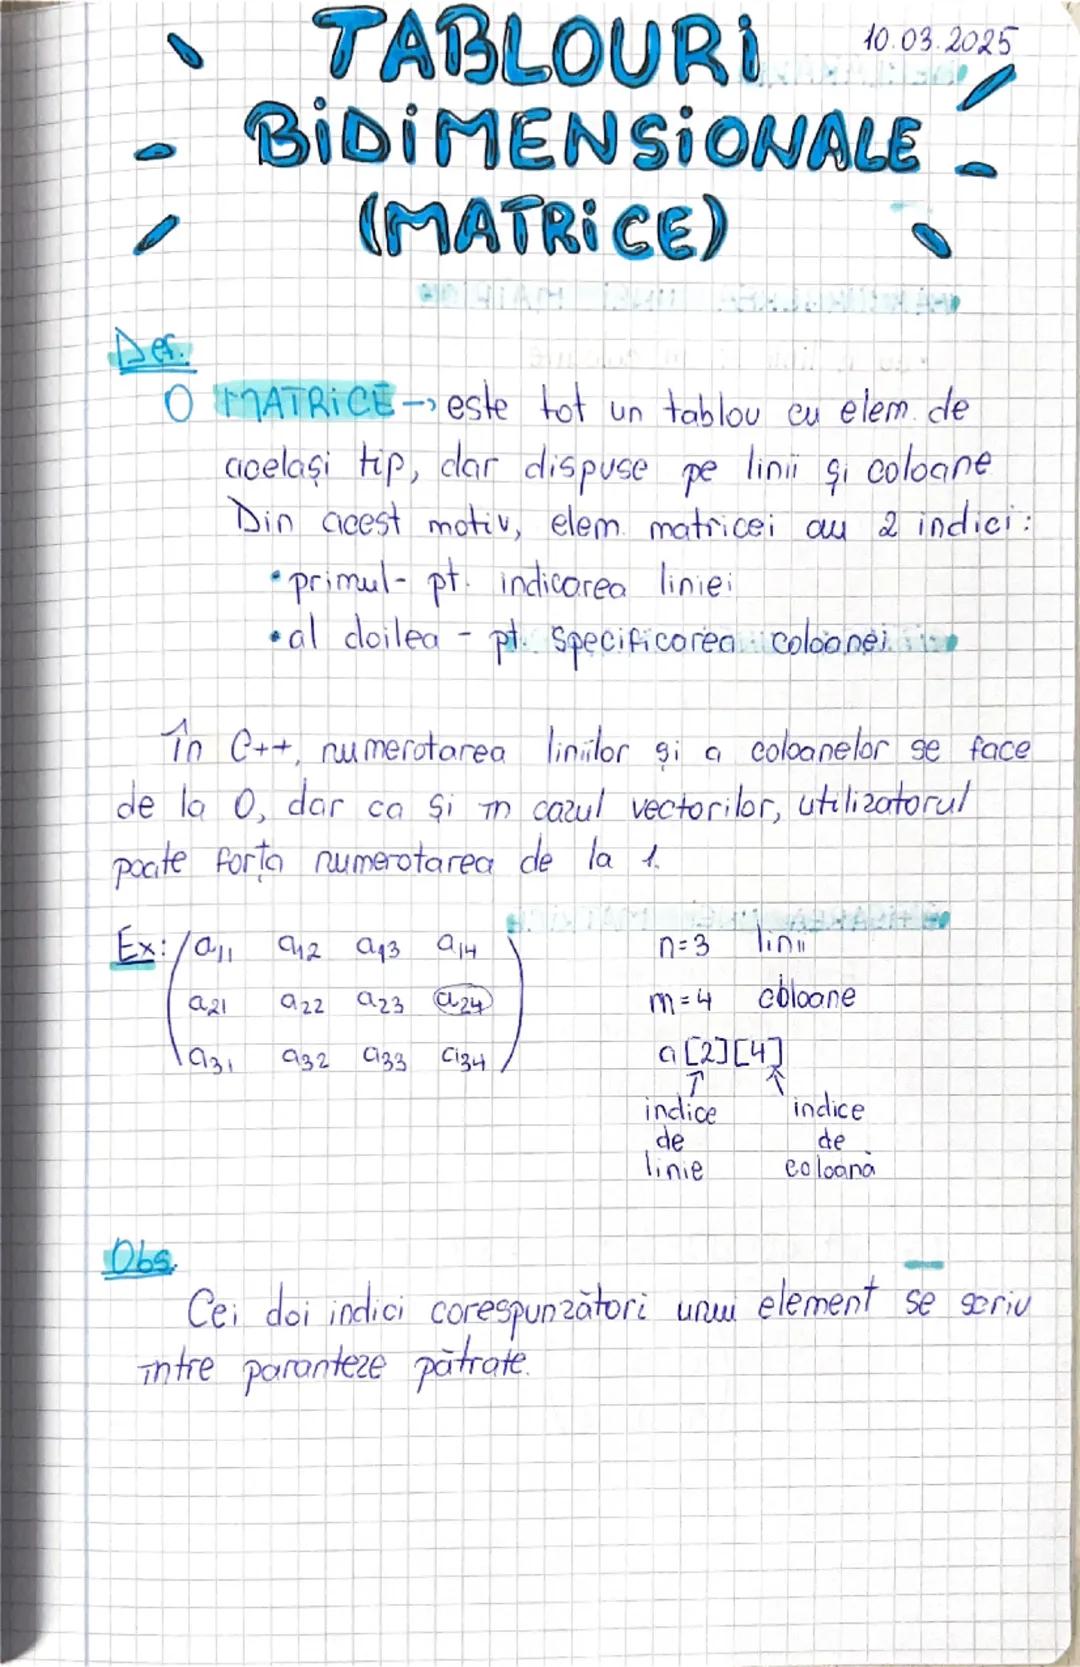 TABLOURI
10.03.2025
BIDIMENSIONALE
(MATRICE)
Def.
O MATRICE → este tot un tablou cu elem. de
același tip, dar dispuse pe linii și coloane
Din acest motiv, elem. matricei au 2 indici:
• primul - pt. indicarea liniei
• al doilea - pt. specificarea coloanei
În C++, numerotarea liniilor și a coloanelor se face
de la 0, dar ca și în cazul vectorilor, utilizatorul
poate forța numerotarea de la 1.
Ex: a11 a12 a13 a14
a21 a22 a23 a24
a31 a32 a33 a34
n=3 linii
m=4 coloane
a[2][4]
↑ ↑
indice de linie
indice de coloană
Obs.
Cei doi indici corespunzători unui element se scriu
între paranteze pătrate.